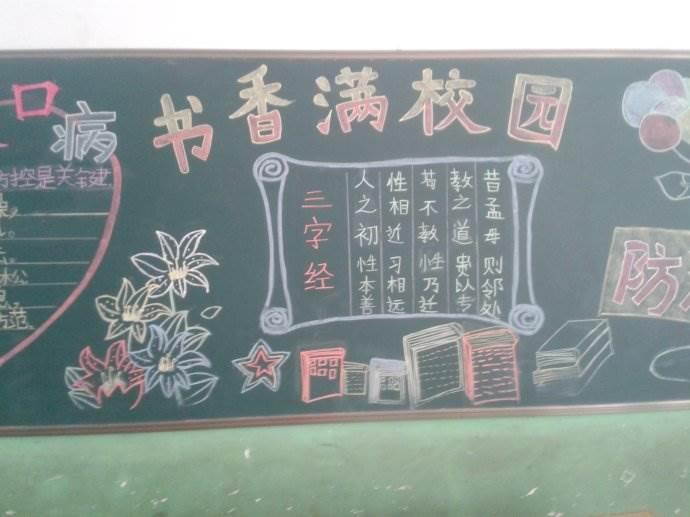 书香满校园
口
病
控是关键
松
范
三字经
人之初 性本善
性相近 习相远
苟不教 性乃迁
教之道 贵以专
昔孟母 则邻处
防